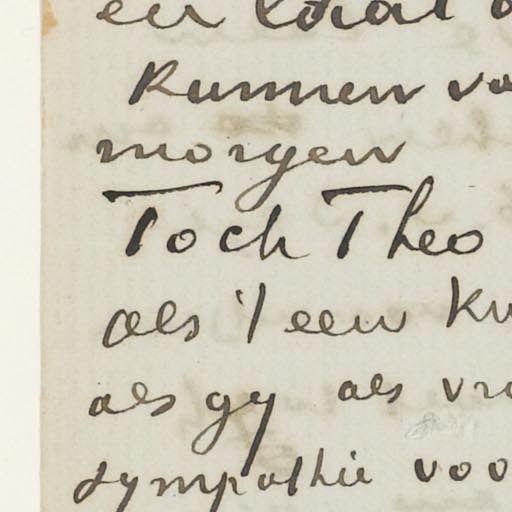 en
kunnen vo
morgen
Toch Theo
als 't een ku
als gy als vro
sympathie voo